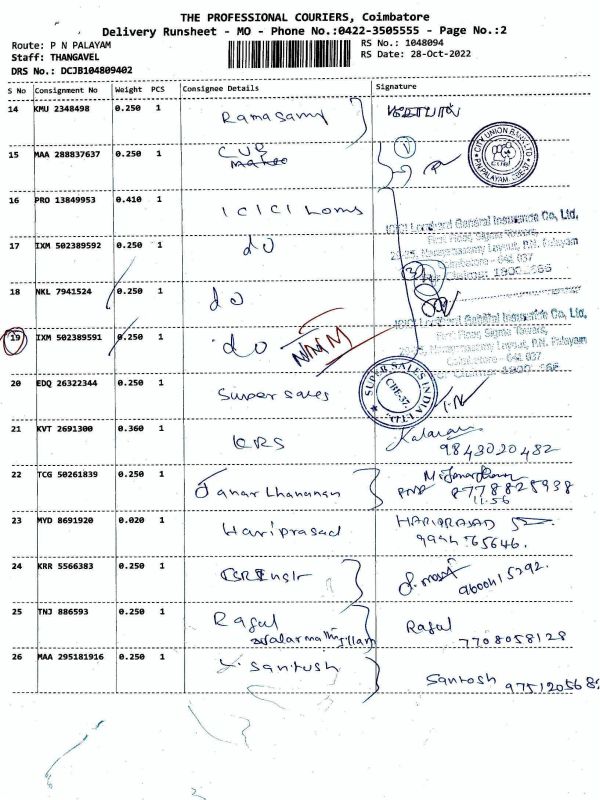 THE PROFESSIONAL COURIERS, Coimbatore
Delivery Runsheet - MO - Phone No.:0422-3505555 - Page No.:2
Route: P N PALAYAM RS No.: 1048094
Staff: THANGAVEL RS Date: 28-Oct-2022
DRS No.: DCJB104809402
S No Consignment No Weight PCS Consignee Details Signature
14 KMU 2348498 0.250 1 Ramasamy
15 MAA 288837637 0.250 1 CUB
CITY UNION BANK LTD. P.N.PALAYAM, CBE-37
16 PRO 13849953 0.410 1 ICICI Loms
ICICI Lombard General Insurance Co, Ltd,
First Floor, Sigma Towers,
Layout, P.N. Palayam
Coimbatore - 641 037
17 IXM 502389592 0.250 1 do
18 NKL 7941524 0.250 1 do
ICICI Lombard General Insurance Co, Ltd,
First Floor, Sigma Towers,
Layout, P.N. Palayam
Coimbatore - 641 037
19 IXM 502389591 0.250 1 do
20 EDQ 26322344 0.250 1 Super sales
SUPER SALES INDIA LTD. CBE-37.
21 KVT 2691300 0.360 1 KRS
9843020482
22 TCG 50261839 0.250 1 Janarthanan
8778828938
11.56
23 MYD 8691920 0.020 1 Hariprasad HARIPRASAD
24 KRR 5566383 0.250 1
9600415292.
25 TNJ 886593 0.250 1 Ragul Ragul
7708058128
26 MAA 295181916 0.250 1 Santhush Santosh 975120568